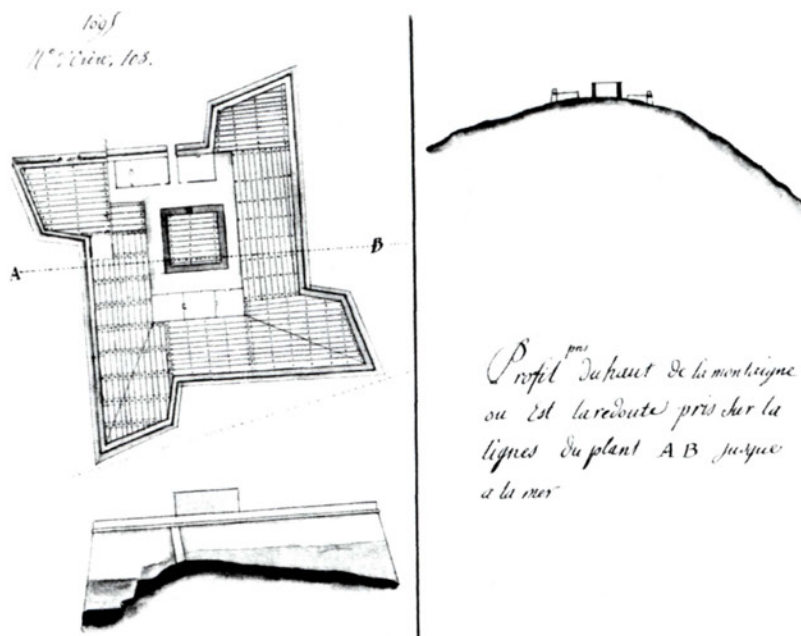 1695
A
B
Profil pris Du haut de la montaigne
ou Est la redoute pris Sur la
lignes du plant A B jusque
a la mer